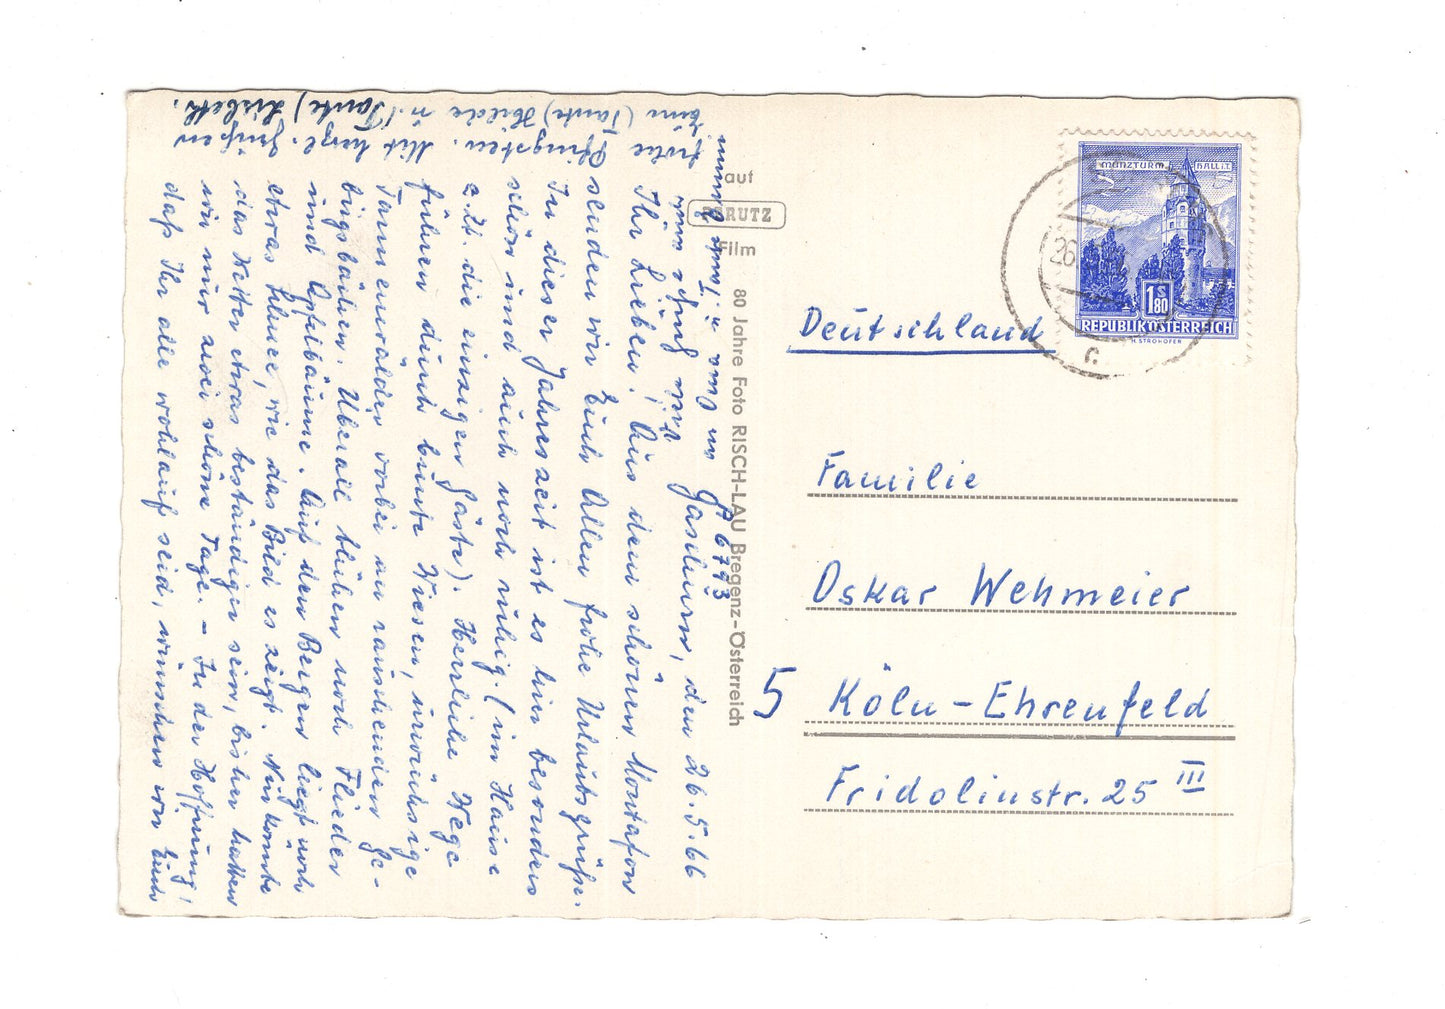 A 6793
Gaschurn, den 26.5.66
Ihr Lieben! Aus dem schönen Montafon
senden wir Euch Allen frohe Urlaubsgrüße.
In dieser Jahreszeit ist es hier besonders
schön und auch noch ruhig. (im Hause
z.Zt. die einzigen Gäste). Herrliche Wege
führen durch bunte Wiesen,
Tannenwälder vorbei an rauschenden Ge-
birgsbächen. Überall blühen noch Flieder
und Apfelbäume. Auf den Bergen liegt noch
etwas Schnee, wie das Bild es zeigt. Nur könnte
das Wetter etwas beständiger sein, bisher hatten
wir nur zwei schöne Tage. - In der Hoffnung,
daß Ihr alle wohlauf seid, wünschen wir Euch
frohe Pfingsten. Mit herzl. Grüßen
Eure (Tante) Hilde u. (Tante) Lisbeth.
Viele Grüße auch
an Oma u. Tante
auf
PERUTZ
Film
80 Jahre Foto RISCH-LAU Bregenz-Österreich
MÜNZTURM HALL i.T.
S
1.80
REPUBLIK ÖSTERREICH
H. STROHOFER
26.
c
Deutschland
Familie
Oskar Wehmeier
5 Köln-Ehrenfeld
Fridolinstr. 25 III